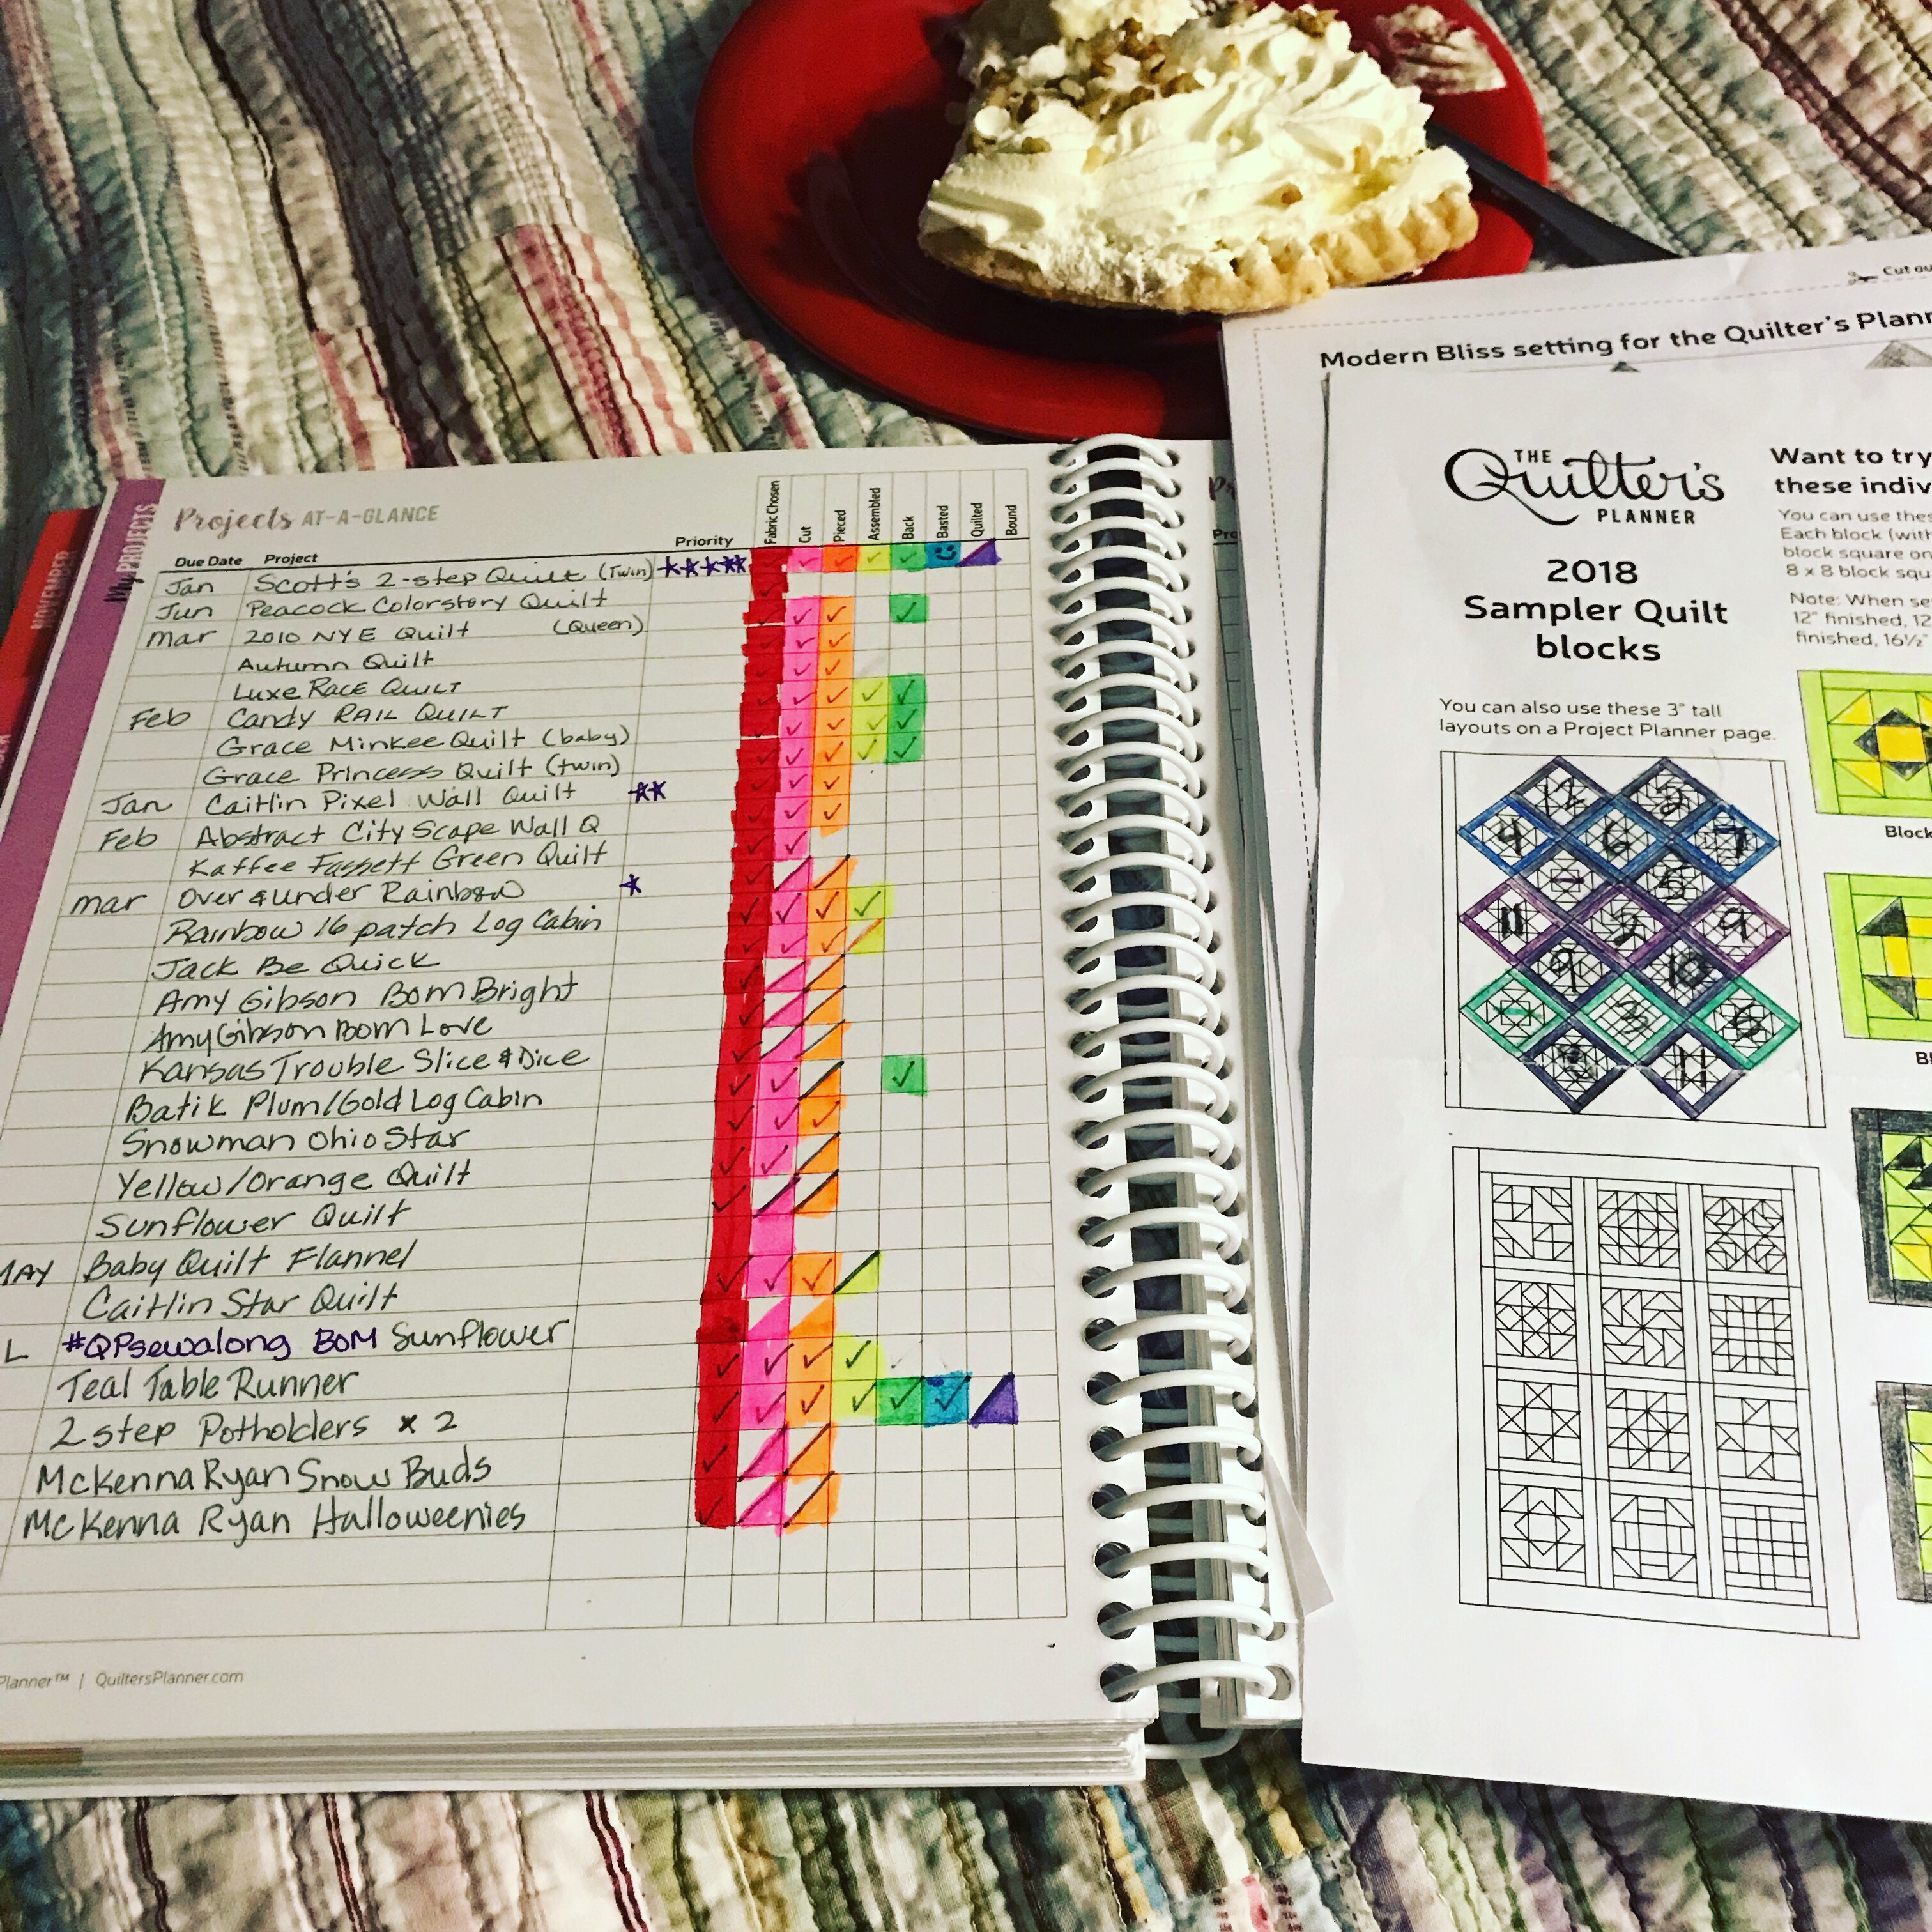 NOVEMBER
My PROJECTS
Projects AT-A-GLANCE
Due Date Project Priority Fabric Chosen Cut Pieced Assembled Back Basted Quilted Bound
Jan Scott's 2-step Quilt (Twin) *****
Jun Peacock Colorstory Quilt
Mar 2010 NYE Quilt (Queen)
Autumn Quilt
Luxe RACE QUILT
Feb Candy RAIL QUILT
Grace Minkee Quilt (baby)
Grace Princess Quilt (twin)
Jan Caitlin Pixel Wall Quilt **
Feb Abstract City Scape Wall Q
Kaffee Fassett Green Quilt
Mar Over & under Rainbow *
Rainbow 16 patch Log Cabin
Jack Be Quick
Amy Gibson BOM Bright
Amy Gibson BOM Love
Kansas Trouble Slice & Dice
Batik Plum/Gold Log Cabin
Snowman Ohio Star
Yellow/Orange Quilt
Sunflower Quilt
MAY Baby Quilt Flannel
Caitlin Star Quilt
L #QPsewalong BOM Sunflower
Teal Table Runner
2 step Potholders x 2
McKenna Ryan Snow Buds
McKenna Ryan Halloweenies
Planner™ | QuiltersPlanner.com
Cut ou
Modern Bliss setting for the Quilter's Plann
THE
Quilter's
PLANNER
2018
Sampler Quilt
blocks
You can also use these 3" tall
layouts on a Project Planner page.
Want to try
these indiv
You can use thes
Each block (with
block square on
8 x 8 block squ
Note: When se
12" finished, 12
finished, 16½"
Block
Bl
12 2
4 6 7
5
11 2 9
9 10
3
11